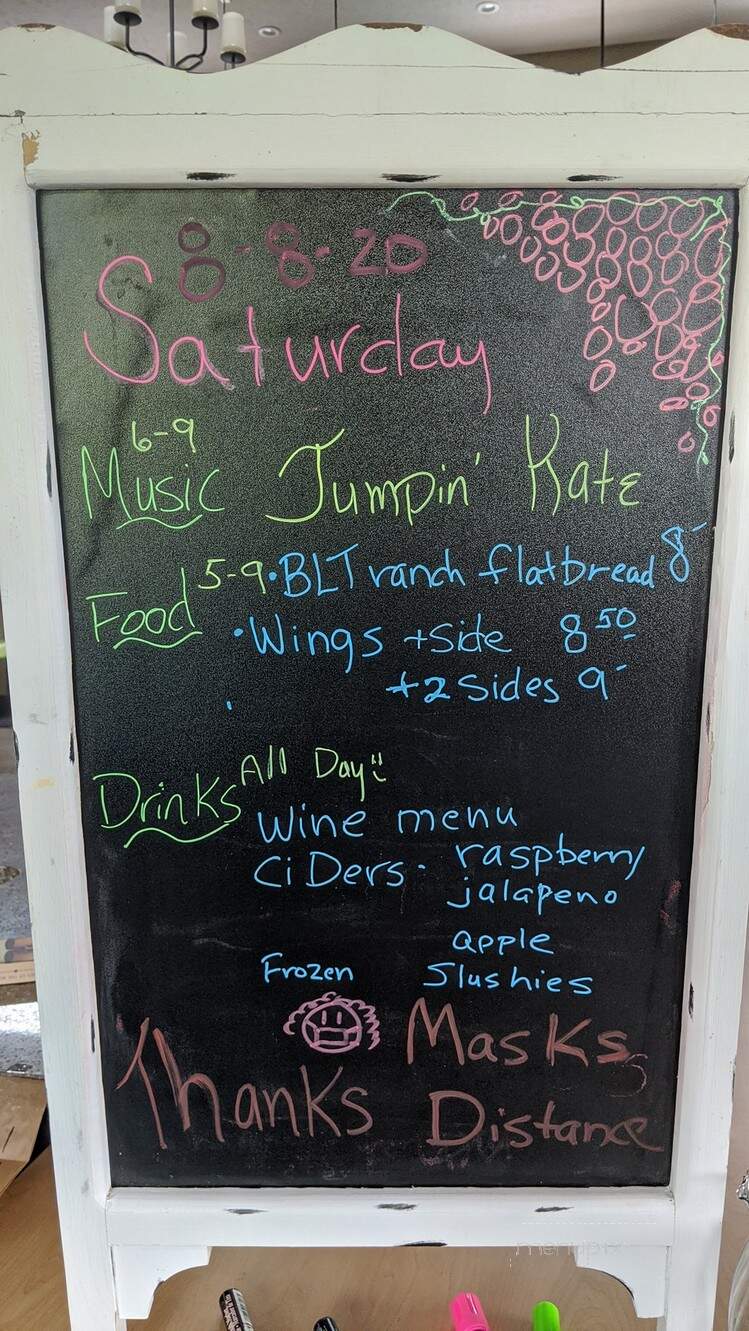 8-8-20
Saturday
6-9
Music Jumpin' Kate
Food 5-9 • BLT ranch flatbread 8-
• Wings + Side 8 50
+ 2 Sides 9-
•
Drinks All Day
Wine menu
CiDers - raspberry
jalapeno
apple
Frozen Slushies
Masks
Thanks Distance